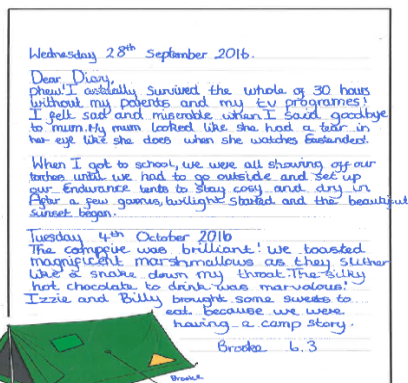 Wednesday 28th September 2016.
Dear Diary,
phew! I actually survived the whole of 30 hours
without my parents and my tv programes!
I felt sad and miserable when I said goodbye
to mum. My mum looked like she had a tear in
her eye like she does when she watches Eastenders!.
When I got to school, we were all showing off our
torches until we had to go outside and set up
our Endurance tents to stay cosy and dry in
After a few games, twilight started and the beautiful
sunset began.
Tuesday 4th October 2016
The campfire was brilliant! we toasted
magnificent marshmallows as they slither
like a snake down my throat. The silky
hot chocolate to drink was marvalous!
Izzie and Billy brought some sweets to
eat because we were
having a camp story.
Brooke 6.3
Brooke